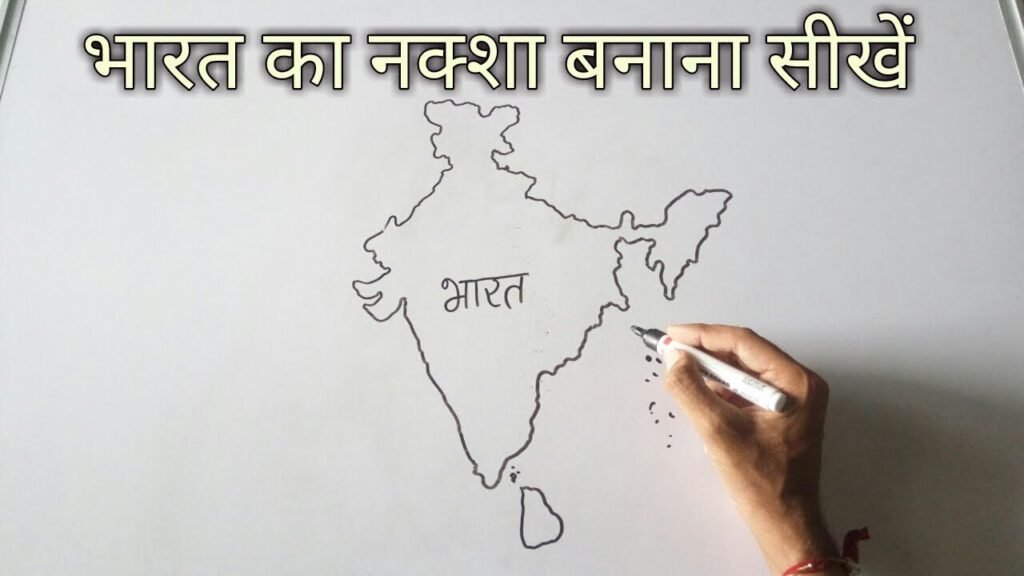 भारत का नक्शा बनाना सीखें
भारत